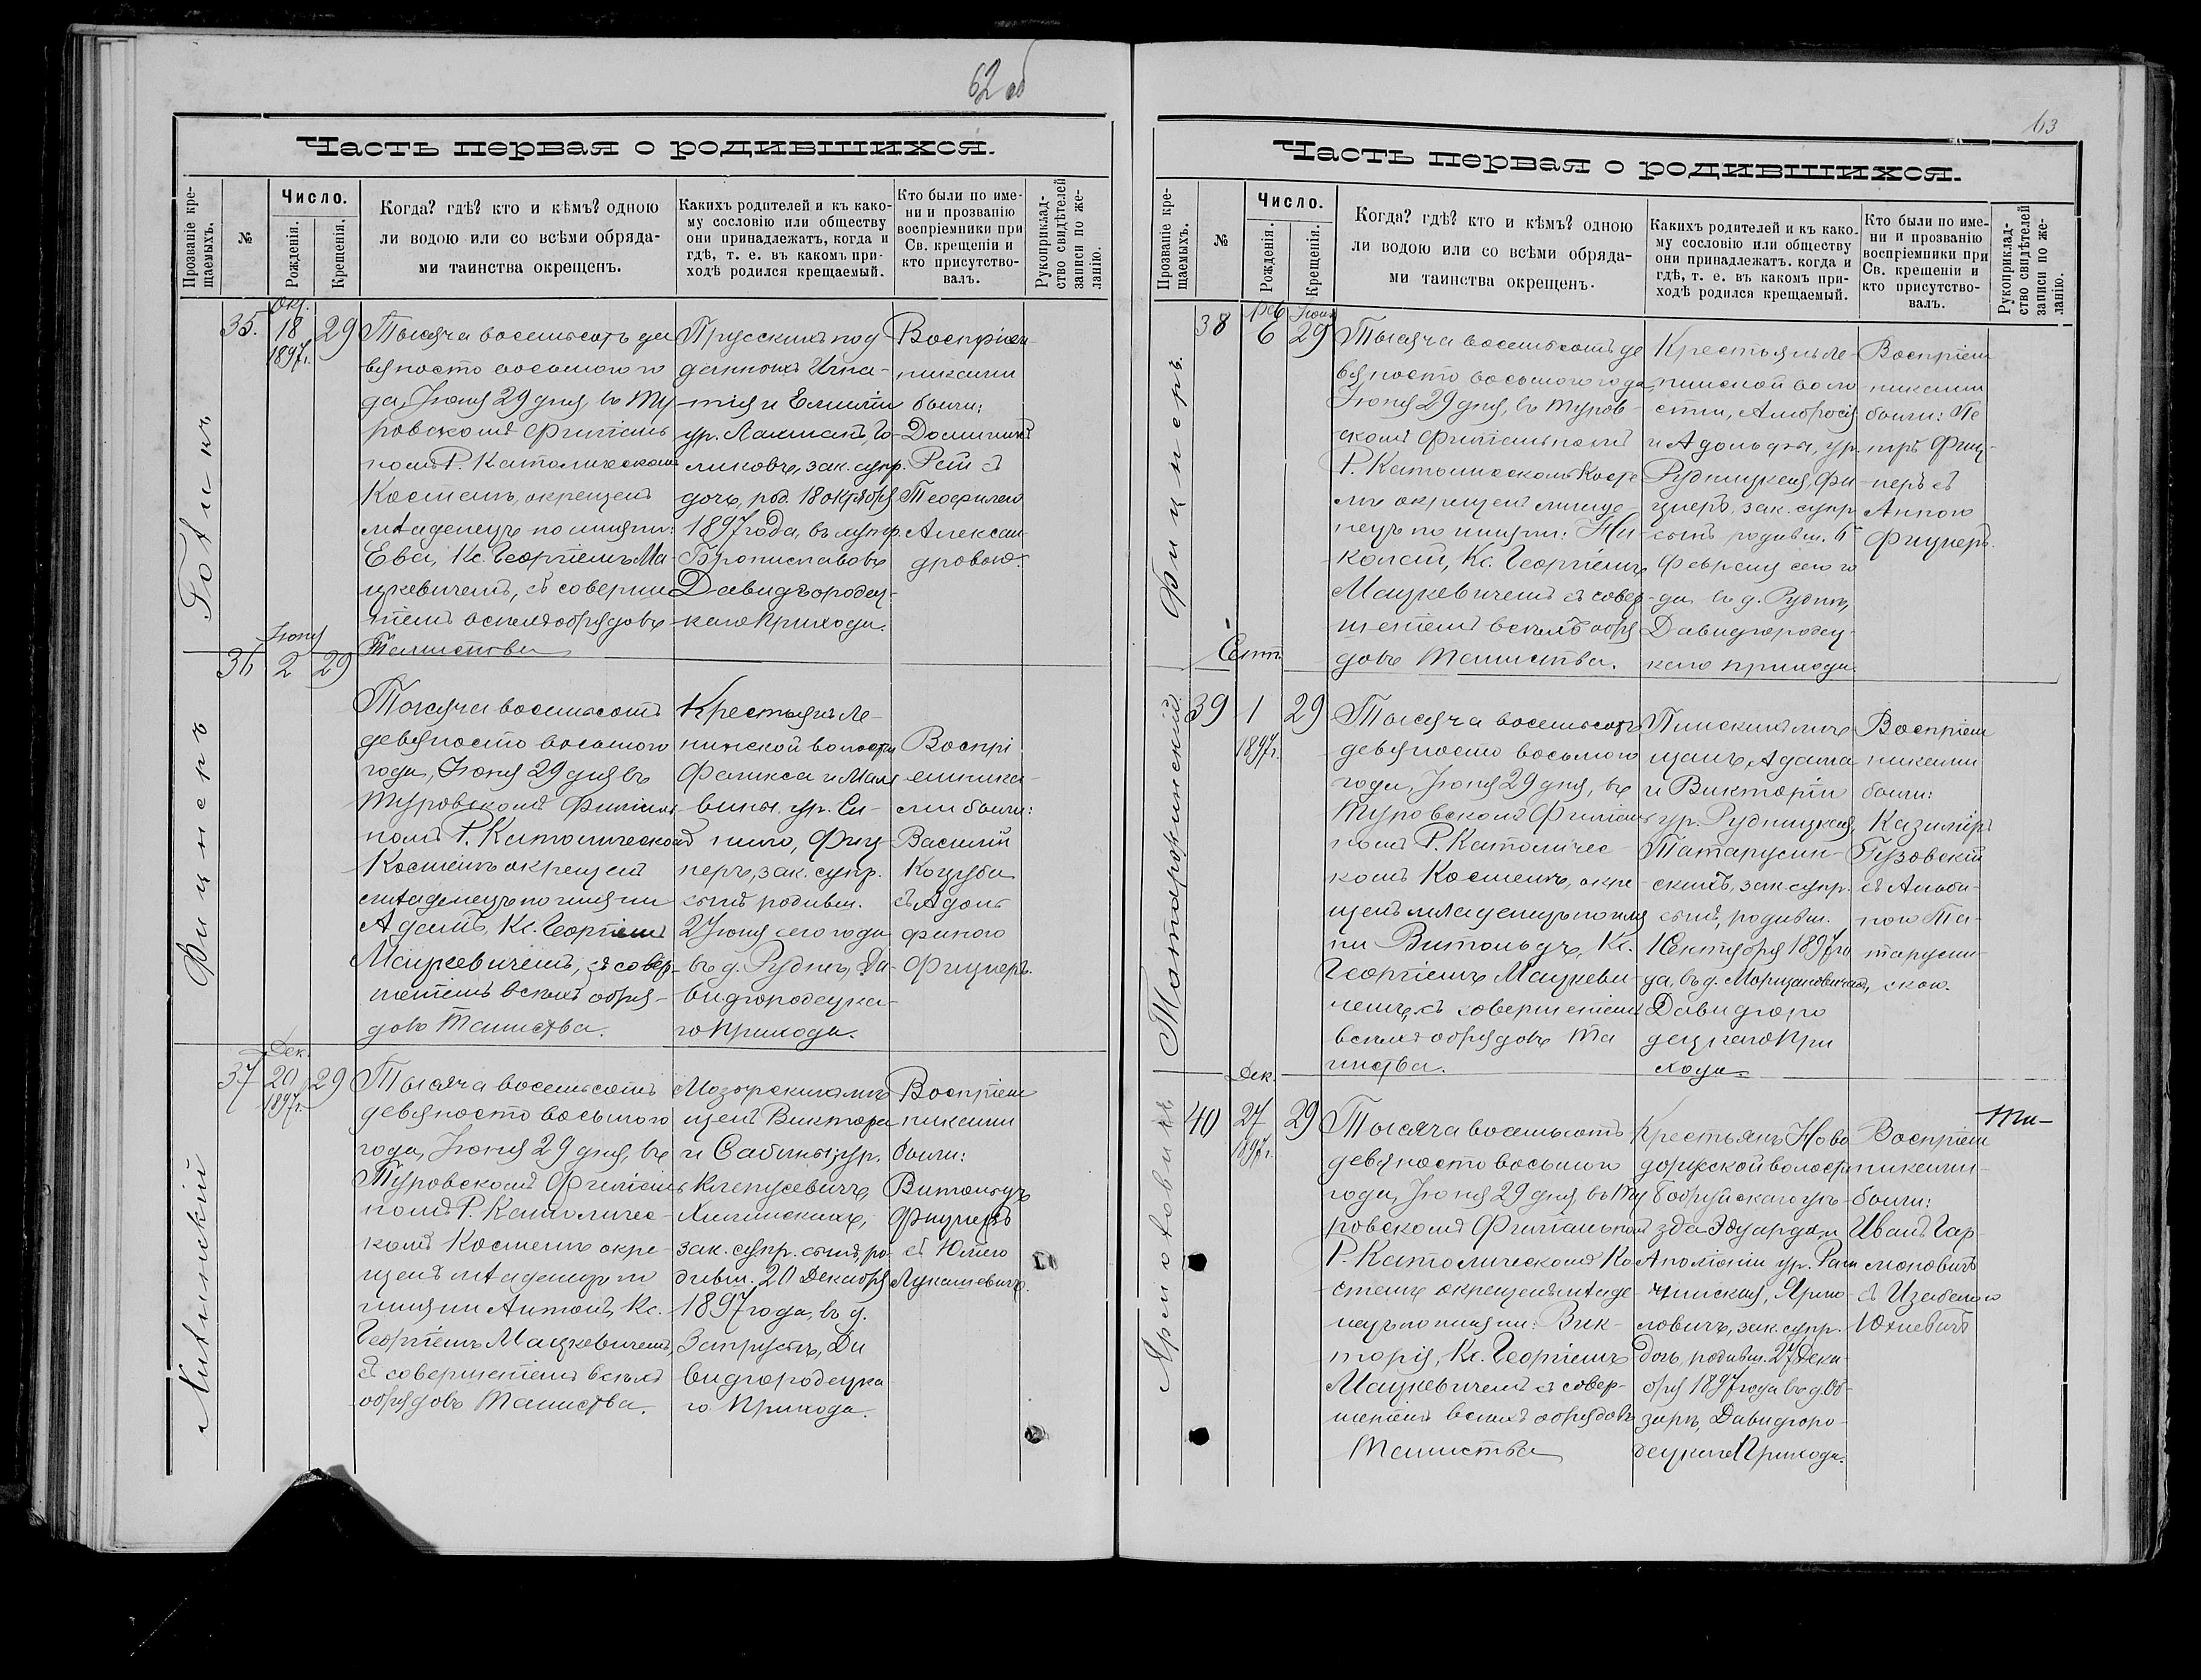 62 об
Часть первая о родившихся.
Прозваніе кре-
щаемыхъ.
№
Число.
Рожденія.
Крещенія.
Когда? гдѣ? кто и кѣмъ? одною
ли водою или со всѣми обряда-
ми таинства окрещенъ.
Какихъ родителей и къ како-
му сословію или обществу
они принадлежатъ, когда и
гдѣ, т. е. въ какомъ при-
ходѣ родился крещаемый.
Кто были по име-
ни и прозванію
воспріемники при
Св. крещеніи и
кто присутство-
валъ.
Рукоприклад-
ство свидѣтелей
записи по же-
ланію.
35.
Окт.
18
1897г.
29
Тысяча восемьсотъ де
вяносто восьмого го
да, Іюня 29 дня, въ Ту
ровскомъ Филіаль
номъ Р. Католическомъ
Костелѣ, окрещенъ
младенецъ по имени:
Ева, Кс. Георгіемъ Ма
цкевичемъ, съ соверше
ніемъ всѣхъ обрядовъ
Таинства
Прусскихъ под
данныхъ Игна-
тія и Емиліи
ур. Лакманъ, Го-
ликовъ, зак. супр.
дочь, род. 18 октября
1897 года, въ
Брониславовѣ
Давидгородец-
каго Прихода.
Воспріем
никами
были:
Доминикъ
съ
Теофилею
Алексан
дровою.
36
Іюня
2
29
Фицнеръ
Тысяча восемьсотъ
девяносто восьмого
года, Іюня 29 дня въ
Туровскомъ Филіаль
номъ Р. Католическомъ
Костелѣ окрещенъ
младенецъ по имени
Адамъ, Кс. Георгіемъ
Мацкевичемъ, съ совер-
шеніемъ всѣхъ обря-
довъ Таинства.
Крестьянъ Ле-
нинской волости
Феликса и Маль
вины, ур. Си-
, Фиц-
неръ, зак. супр.
сынъ родивш.
2 Іюня сего года
въ д. Руднѣ, Да-
видгородецка-
го Прихода.
Воспрі
емника-
ми были:
Василій
Коцуба
съ Адоль
финою
Фицнеръ.
37
Дек.
20
1897г.
29
Тысяча восемьсотъ
девяносто восьмого
года, Іюня 29 дня, въ
Туровскомъ Филіаль
номъ Р. Католичес-
комъ Костелѣ окре-
щенъ младенецъ по
имени Антонъ, Кс.
Георгіемъ Мацкевичемъ,
съ совершеніемъ всѣхъ
обрядовъ Таинства.
Мозырскихъ мѣ
щанъ Виктора
и Сабины, ур.
зак. супр. сынъ, ро-
дивш. 20 Декабря
1897 года, въ д.
Запрустѣ, Да
видгородецка
го Прихода.
Воспріем
никами
были:
Витольдъ
Фицнеръ
съ Юліею
Лукашевичъ.
63
Часть первая о родившихся.
Прозваніе кре-
щаемыхъ.
№
Число.
Рожденія.
Крещенія.
Когда? гдѣ? кто и кѣмъ? одною
ли водою или со всѣми обряда-
ми таинства окрещенъ.
Какихъ родителей и къ како-
му сословію или обществу
они принадлежатъ. когда и
гдѣ, т. е. въ какомъ при-
ходѣ родился крещаемый.
Кто были по име-
ни и прозванію
воспріемники при
Св. крещеніи и
кто присутство-
валъ.
Рукоприклад-
ство свидѣтелей
записи по же-
ланію.
Фицнеръ.
38
Фев
6
Іюня
29
Тысяча восемьсотъ де
вяносто восьмого года,
Іюня 29 дня, въ Туров-
скомъ Филіальномъ
Р. Католическомъ Косте
лѣ окрещенъ младе
нецъ по имени: Ни
колай, Кс. Георгіемъ
Мацкевичемъ съ совер-
шеніемъ всѣхъ обря
довъ Таинства.
Крестьянъ Ле-
нинской воло
сти, Амбросія
и Адольфы, ур.
Рудницкая, Фи-
цнеръ, зак. супр.
сынъ родивш. 6
Февраля сего го
да въ д. Руднѣ,
Давидгородец-
каго прихода.
Воспріем
никами
были: Пе
тръ Фиц-
неръ съ
Анною
Фицнеръ.
Татарусинскій
39
Сент.
1
1897г.
29
Тысяча восемьсотъ
девяносто восьмого
года, Іюня 29 дня, въ
Туровскомъ Филіаль
номъ Р. Католичес-
комъ Костелѣ, окре-
щенъ младенецъ по име
ни Витольдъ, Кс.
Георгіемъ Мацкеви-
чемъ, съ совершеніемъ
всѣхъ обрядовъ Та
инства.
Пинскихъ мѣ
щанъ, Адама
и Викторіи
ур. Рудницкая,
Татарусин-
скихъ, зак. супр.
сынъ, родивш.
1 Сентября 1897 го
да, въ д.
Давидгоро
децкаго При
хода.
Воспріем
никами
были:
Казиміръ
Гузовскій
съ Альби-
ною Та-
таруси-
скою.
40
Дек.
27
1897г.
29
Тысяча восемьсотъ
девяносто восьмого
года, Іюня 29 дня въ Ту
ровскомъ Филіальномъ
Р. Католическомъ Ко
стелѣ окрещенъ младе
нецъ по имени: Вик-
торія, Кс. Георгіемъ
Мацкевичемъ съ совер-
шеніемъ всѣхъ обрядовъ
Таинства
Крестьянъ Ново
дорожской волости
Бобруйскаго уѣ-
зда Эдуарда и
Аполоніи ур.
зак. супр.
дочь, родивш. 27 Дека
бря 1897 года въ д.
Давидгоро-
децкаго Прихода.
Воспріем
никами
были:
Иванъ Гар-
моновичъ
съ Изабелою
Юхневичъ